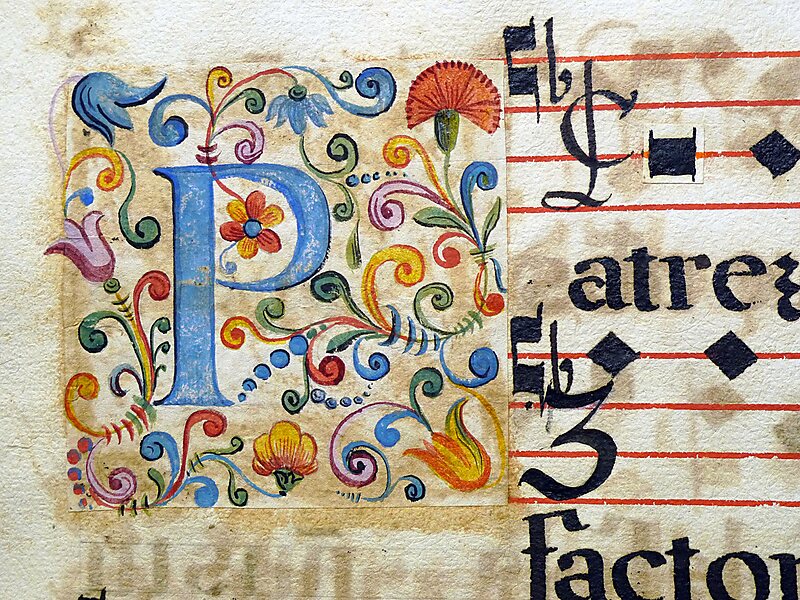 Patrez
3
factor